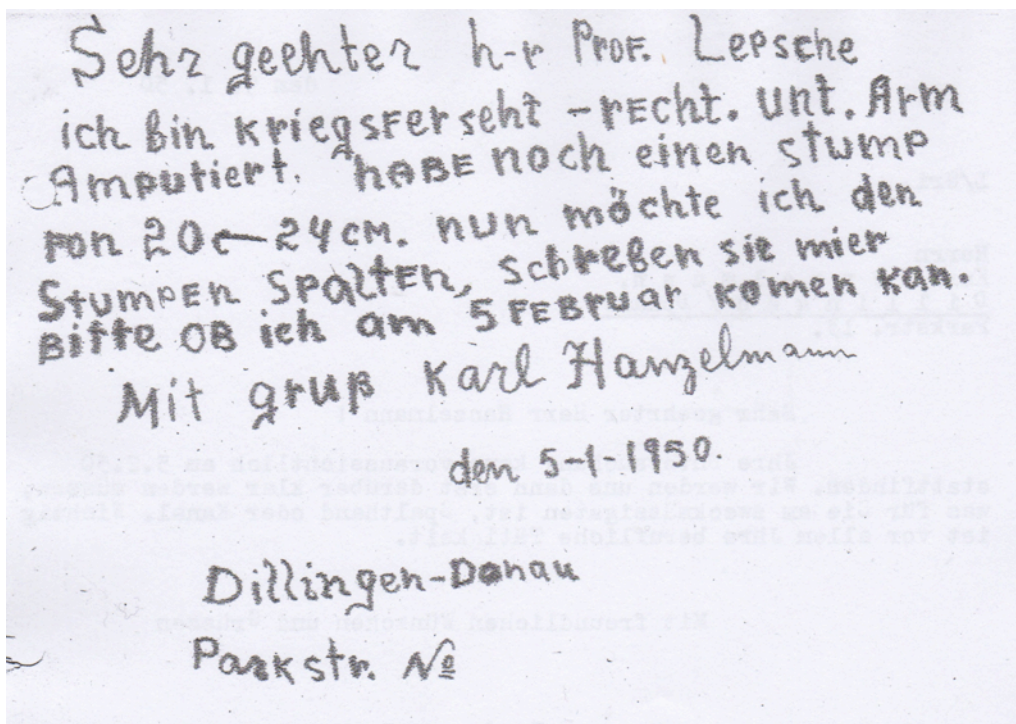 Sehr geehter h-r Prof. Lepsche
ich bin kriegsferseht - recht. unt. Arm
Amputiert. habe noch einen stump
von 20 - 24 cm. nun möchte ich den
Stumpen spalten, schreben sie mier
Bitte ob ich am 5 Februar komen kan.
Mit gruß Karl Hanzelmann
den 5-1-1950.
Dillingen-Donau
Parkstr. №